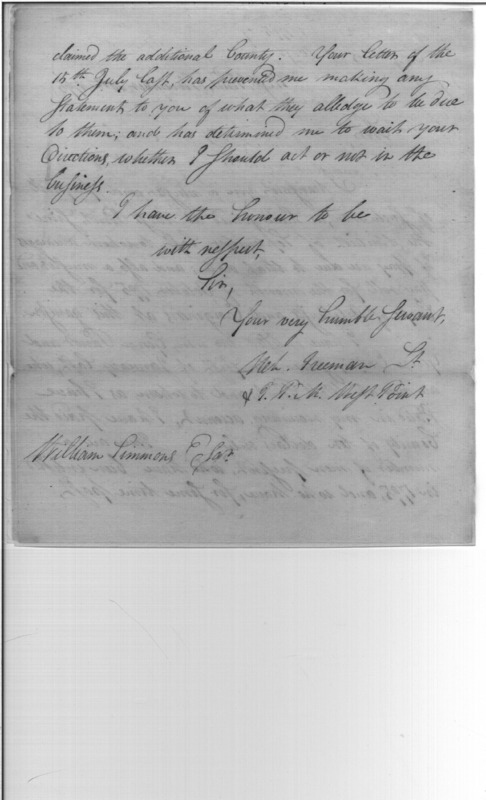 claimed the additional bounty. Your letter of the
15th July last, has prevented me making any
Statement to you of what they alledge to be due
to them; and has determined me to wait your
Directions, whether I should act or not in the
business
I have the honour to be
with respect,
Sir,
Your very humble Servant,
Neh. Freeman Lt
& P. Mr. West Point
William Simmons Esqr.